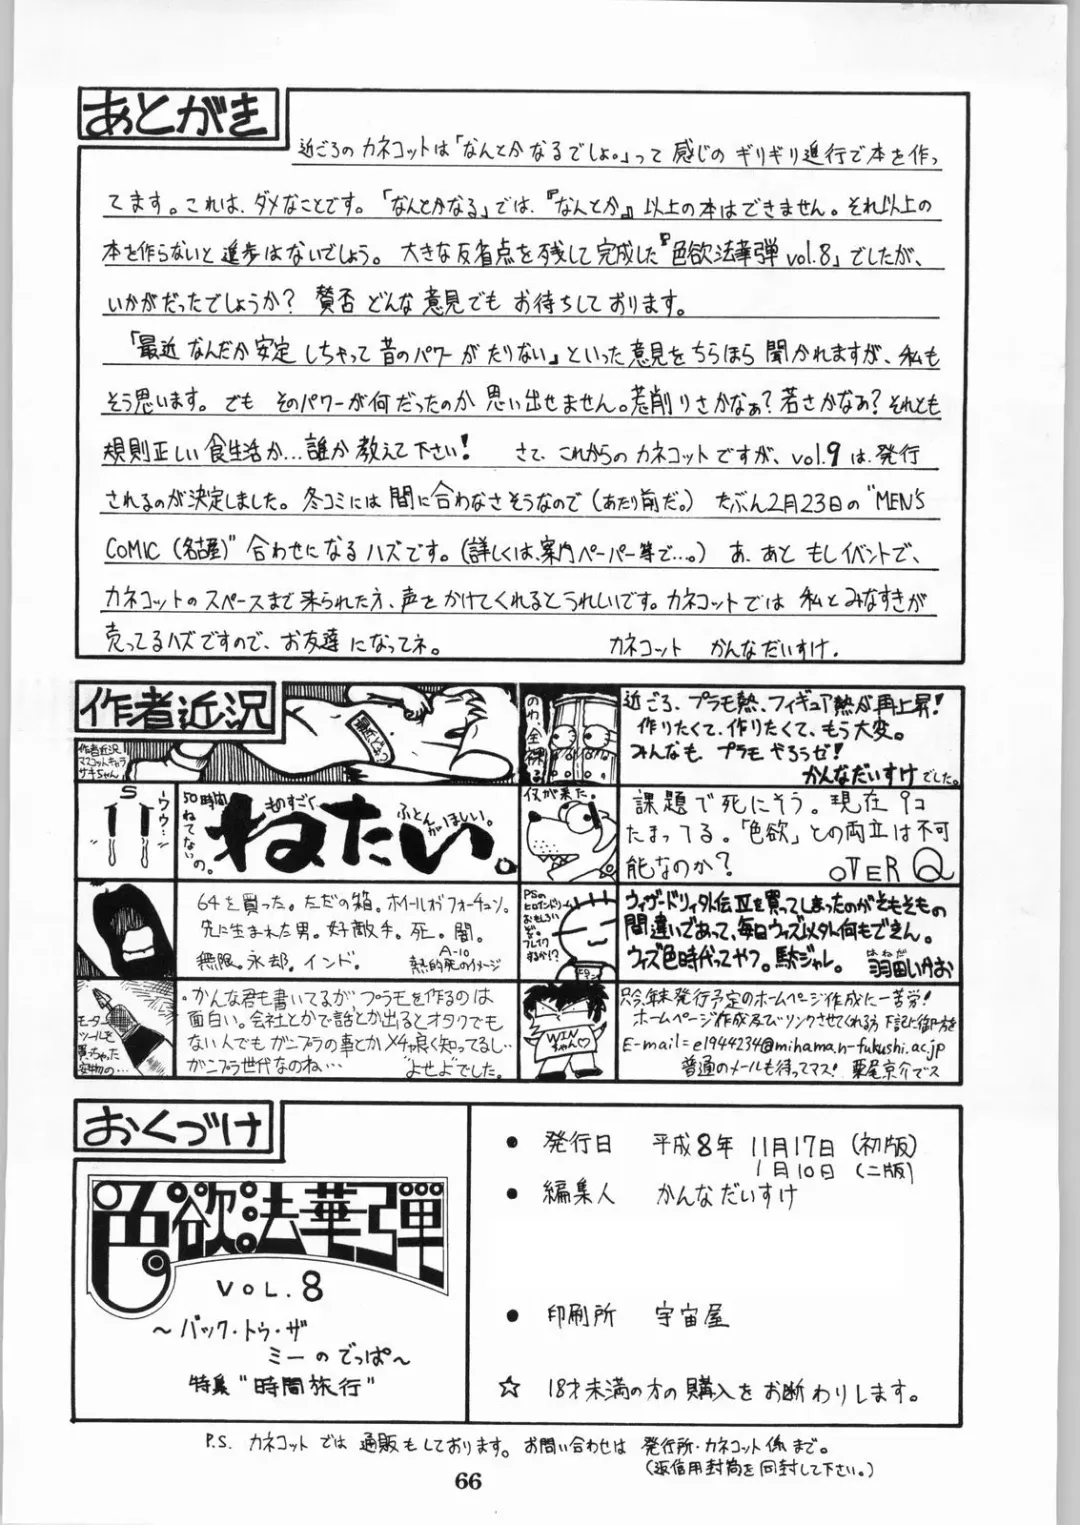 あとがき
近ごろの カネコットは「なんとかなるでしょ。」って 感じの ギリギリ進行で本を作っ
てます。これは、ダメなことです。「なんとかなる」では、『なんとか』以上の本はできません。それ以上の
本を作らないと 進歩はないでしょう。 大きな反省点を残して完成した『色欲法華弾 vol.8」でしたが、
いかがだったでしょうか? 賛否 どんな意見でも お待ちしております。
「最近 なんだか安定 しちゃって 昔のパワーが たりない」といった意見を ちらほら 聞かれますが、私も
そう思います。でも そのパワーが何だったのか 思い出せません。荒削りさかなぁ?若さかなぁ?それとも
規則正しい食生活か…誰か教えて下さい! さて、これからの カネコットですが、vol.9 は、発行
されるのが決定しました。冬コミには 間に合わなさそうなので(あたり前だ。) たぶん2月23日の "MEN'S
COMIC (名古屋)" 合わせになるハズです。(詳しくは、案内ペーパー等で…。) あ、あと もしイベントで、
カネコットのスペースまで来られた方、声をかけてくれるとうれしいです。カネコットでは 私とみなすきが
売ってるハズですので、お友達になってネ。 カネコット かんなだいすけ.
作者近況
作者近況
マスコットキャラ
サキちゃん
のわ、全裸
近ごろ、プラモ熱、フィギュア熱が再上昇!
作りたくて、作りたくて、もう大変。
みんなも、プラモ やろうゼ!
かんなだいすけでした。
S
ウウ…
50時間
ねてないの。
ものすごく
ねたい。
ふとんが
ほしい。
何が来た。
課題で死にそう。現在 9コ
たまってる。「色欲」との両立は不可
能なのか?
OVER Q
64を買った。ただの箱。ホイールオブフォーチュン。
先に生まれた男。好敵手。死。闇。
無限。永却。インド。
A-10
熱的死のイメージ
PSの
おもしろい
ぞ。
ブレイク
するか!?
ウィザードリィ外伝Ⅳを買ってしまったのがそもそもの
間違いであって、毎日ウィズ以外何もできん。
ウィズ色時代ってやつ。駄ジャレ。 羽田いわお
はねだ
モーター
ツールを
買っちゃった
・かんな君も書いてるが プラモを作るのは
面白い。会社とかで話とか出るとオタクでも
ない人でも ガンプラの事とか メチャ良く知ってるし…
ガンプラ世代なのね… よせよでした。
WIN
ちゃん♡
只今年末発行予定のホームページ作成に一苦労!
ホームページ作成及びリンクさせてくれる方 下記に御一方を
E-mail=e1944234@mihama.n-fukushi.ac.jp
普通のメールも待ってマス! 栗尾京介でス
おくづけ
色欲法華弾
VOL.8
～バック・トゥ・ザ
ミーのでっぱ～
特集 "時間旅行"
● 発行日 平成8年 11月17日 (初版)
1月10日 (二版)
● 編集人 かんなだいすけ
● 印刷所 宇宙屋
☆ 18才未満の方の購入をお断わりします。
P.S. カネコット では 通販もしております。お問い合わせは 発行所・カネコット係まで。
(返信用封筒を同封して下さい。)
66